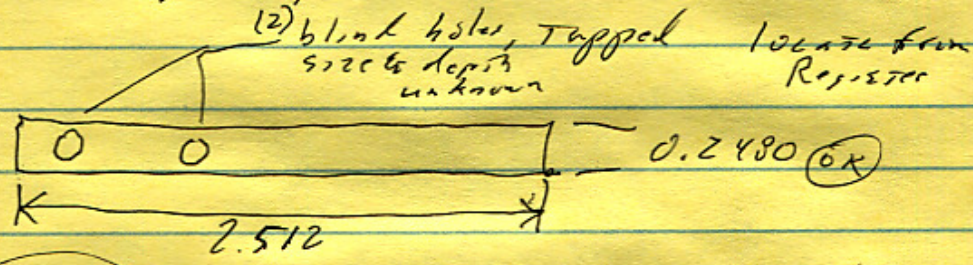 (2) blind holes, Tapped
size & depth
unknown
locate from
Register
0.2480 OK
2.512